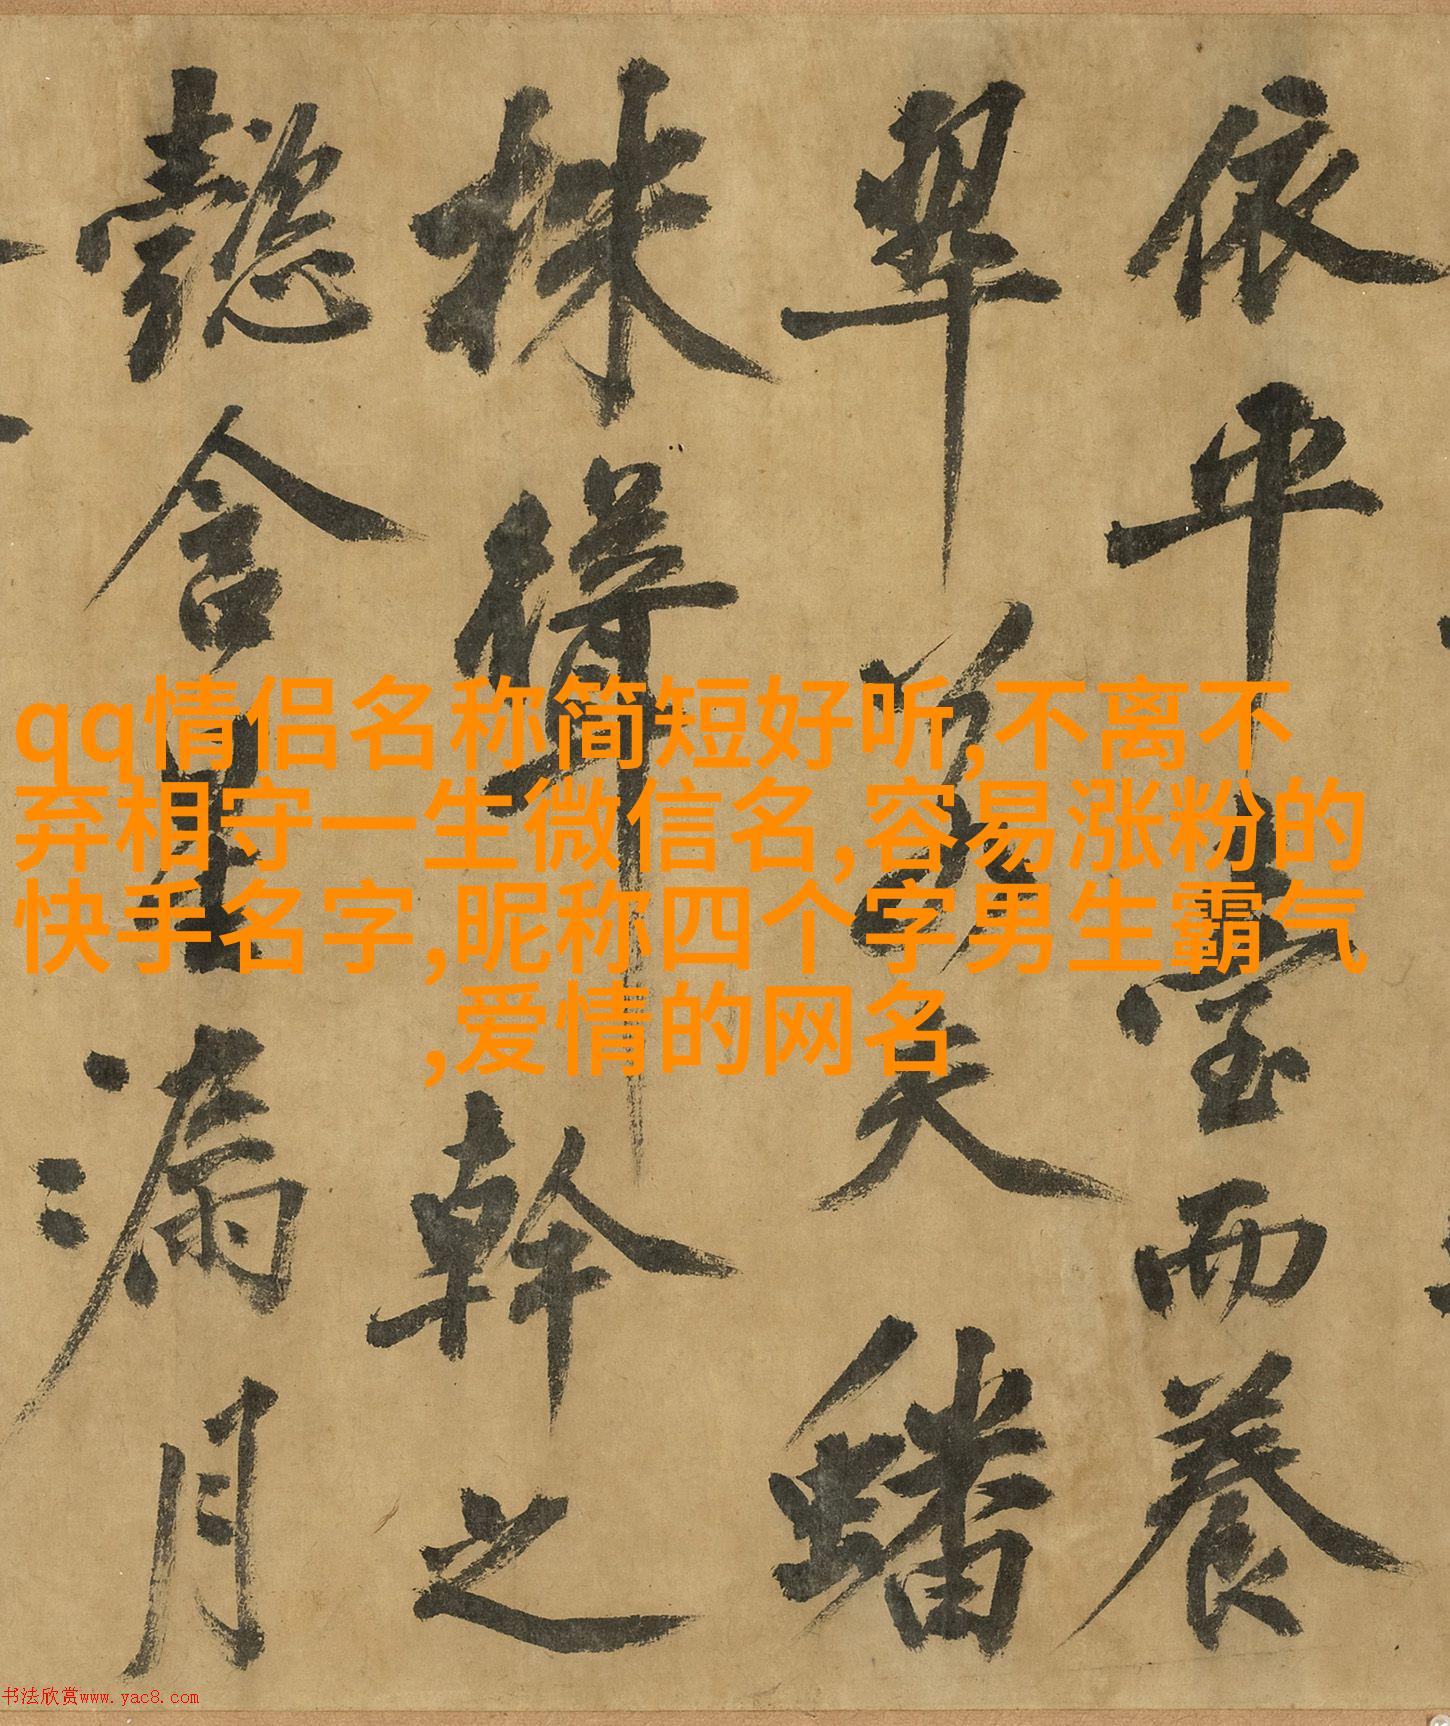 依平臺而養
翠若夫蟠
株聳幹之
懿含星漏月
qq情侣名称简短好听,不离不
弃相守一生微信名,容易涨粉的
快手名字,昵称四个字男生霸气
,爱情的网名
书法欣赏www.yac8.com